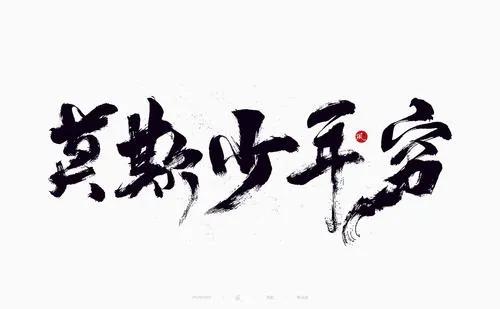 莫斯少年穷